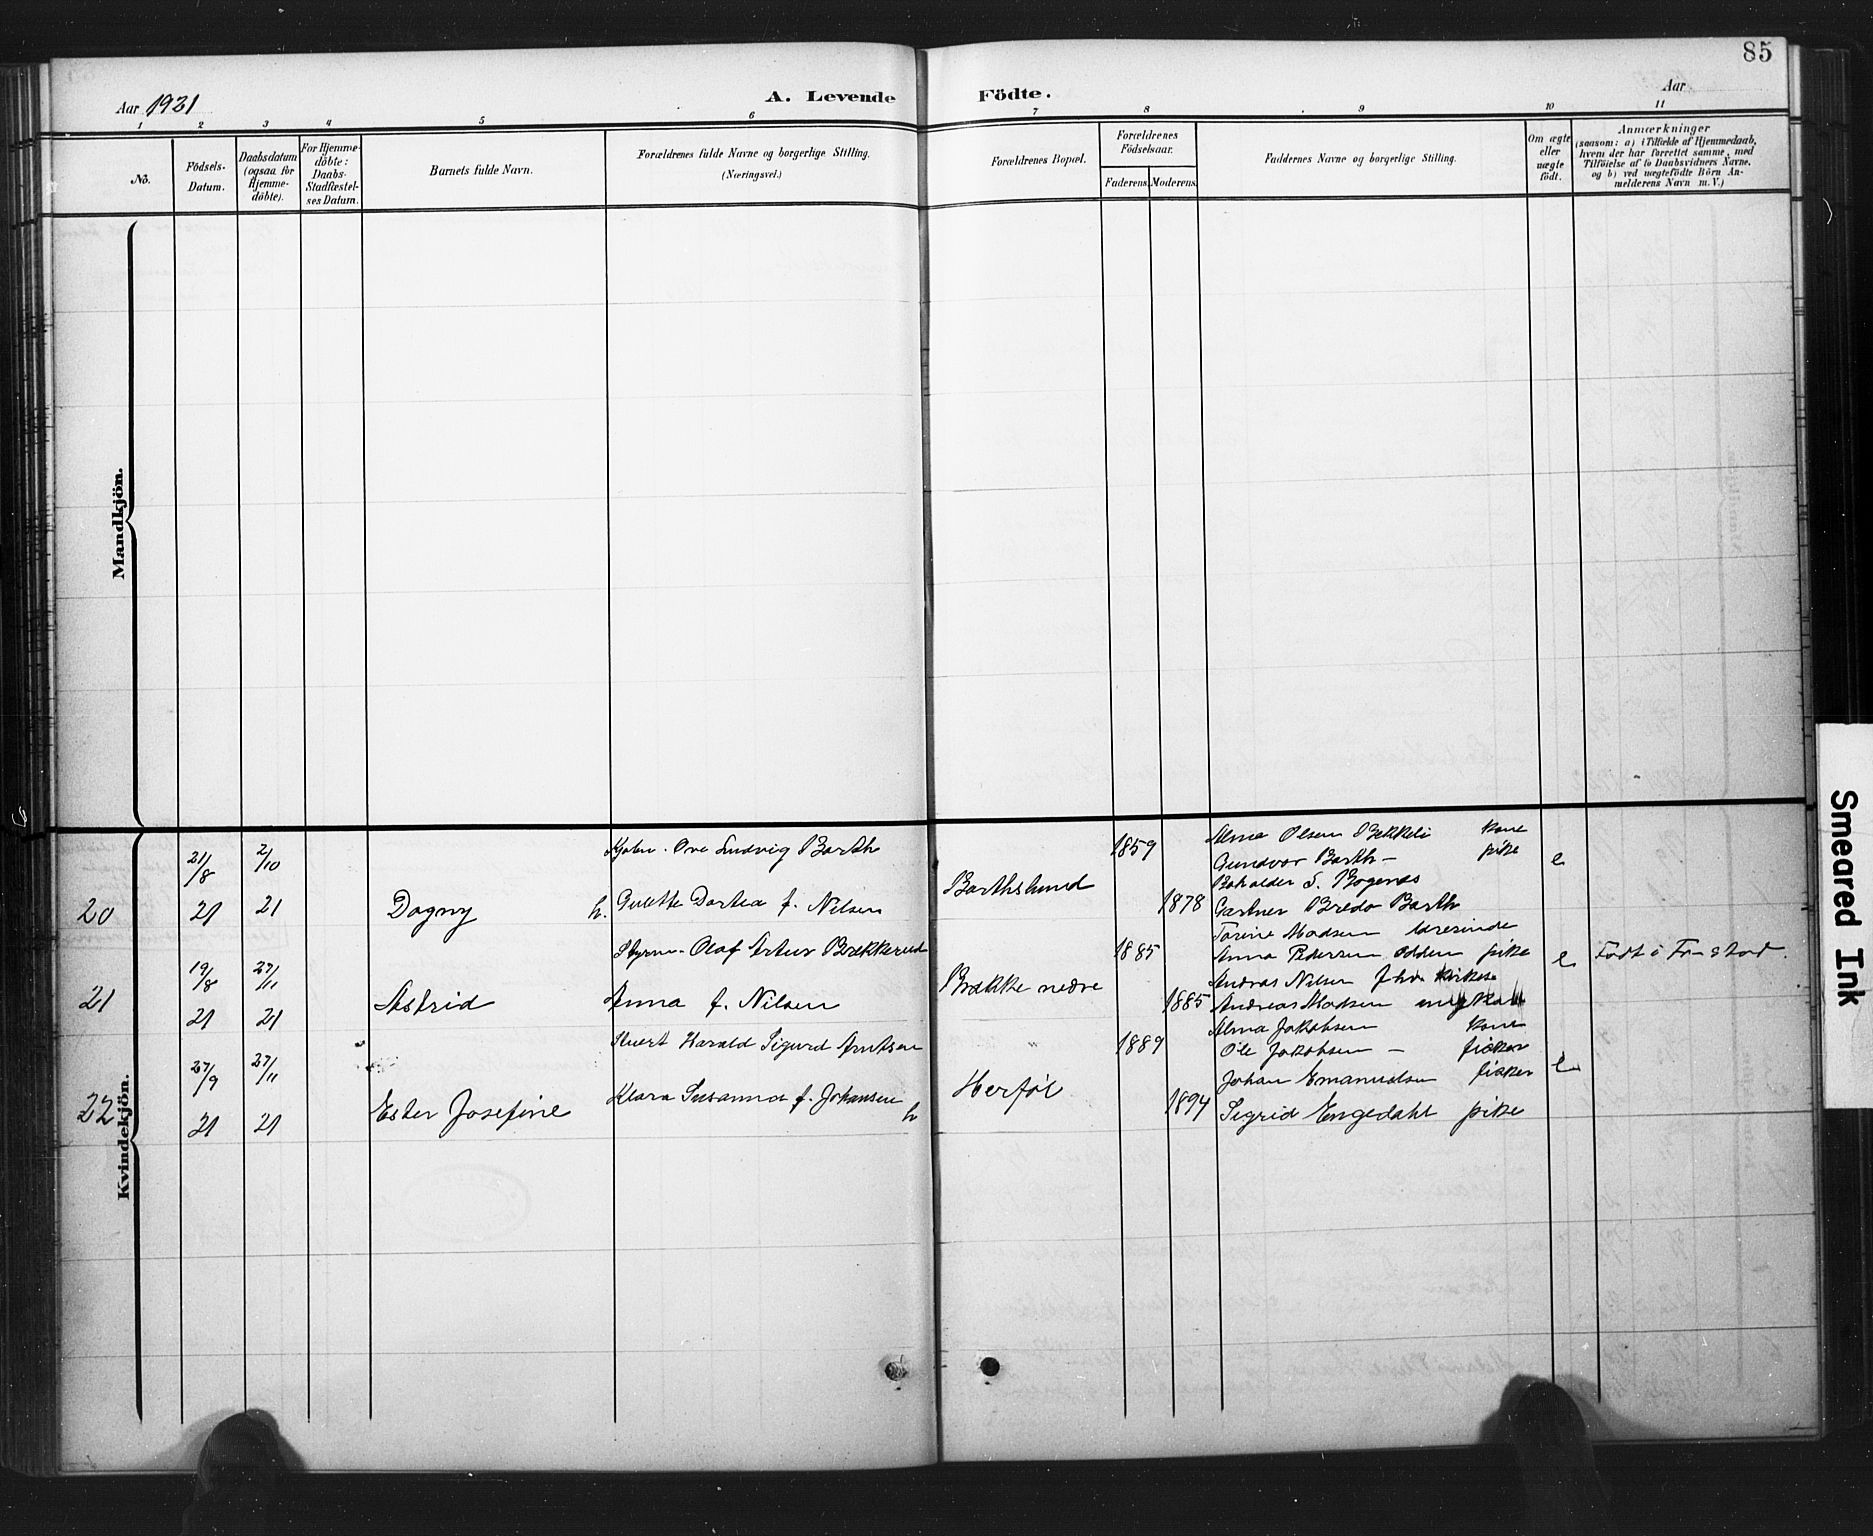 85
Aar 1921
A. Levende Födte.
Aar
1 2 3 4 5 6 7 8 9 10 11
No.
Födsels-
Datum.
Daabsdatum
(ogsaa for
Hjemme-
döbte).
For Hjemme-
döbte:
Daabs-
Stadfæstel-
ses Datum.
Barnets fulde Navn.
Forældrenes fulde Navne og borgerlige Stilling.
(Næringsvei.)
Forældrenes Bopæl.
Forældrenes
Födselsaar.
Faderens. Moderens.
Faddernes Navne og borgerlige Stilling.
Om ægte
eller
uægte
födt.
Anmærkninger
(saasom: a) i Tilfælde af Hjemmedaab,
hvem der har forrettet samme, med
Tilföielse af to Daabsvidners Navne,
og b) ved uægtefödte Börn An-
melderens Navn m. V.)
Mandkjön.
Kvindekjön.
20
21/8 21
2/10 21
Dagny
h.
Ove Ludvig Barth
Dortea f. Nilsen
Barthslund
1859
1878
Alma Olsen Bekkeli kone
Gundvor Barth – pike
S. Bogenæs
Gartner Bredo Barth
e
21
19/8 21
27/11 21
Astrid
Styrm. Olaf Artur Brækkerud
Anna f. Nilsen
Brække nedre
1885
1885
Torine Madsen
Anna Pedersen Odden pike
Andras Nilsen
Andreas Madsen
e
Født i Fr-stad.
22
27/9 21
27/11 21
Ester Josefine
Harald Sigurd Arntsen
Klara Susanna f. Johansen
h
Herføl
1889
1894
Alma Jakobsen kone
Ole Jakobsen – fisker
Johan Emanuelsen fisker
Sigrid Engedahl pike
e
Smeared Ink